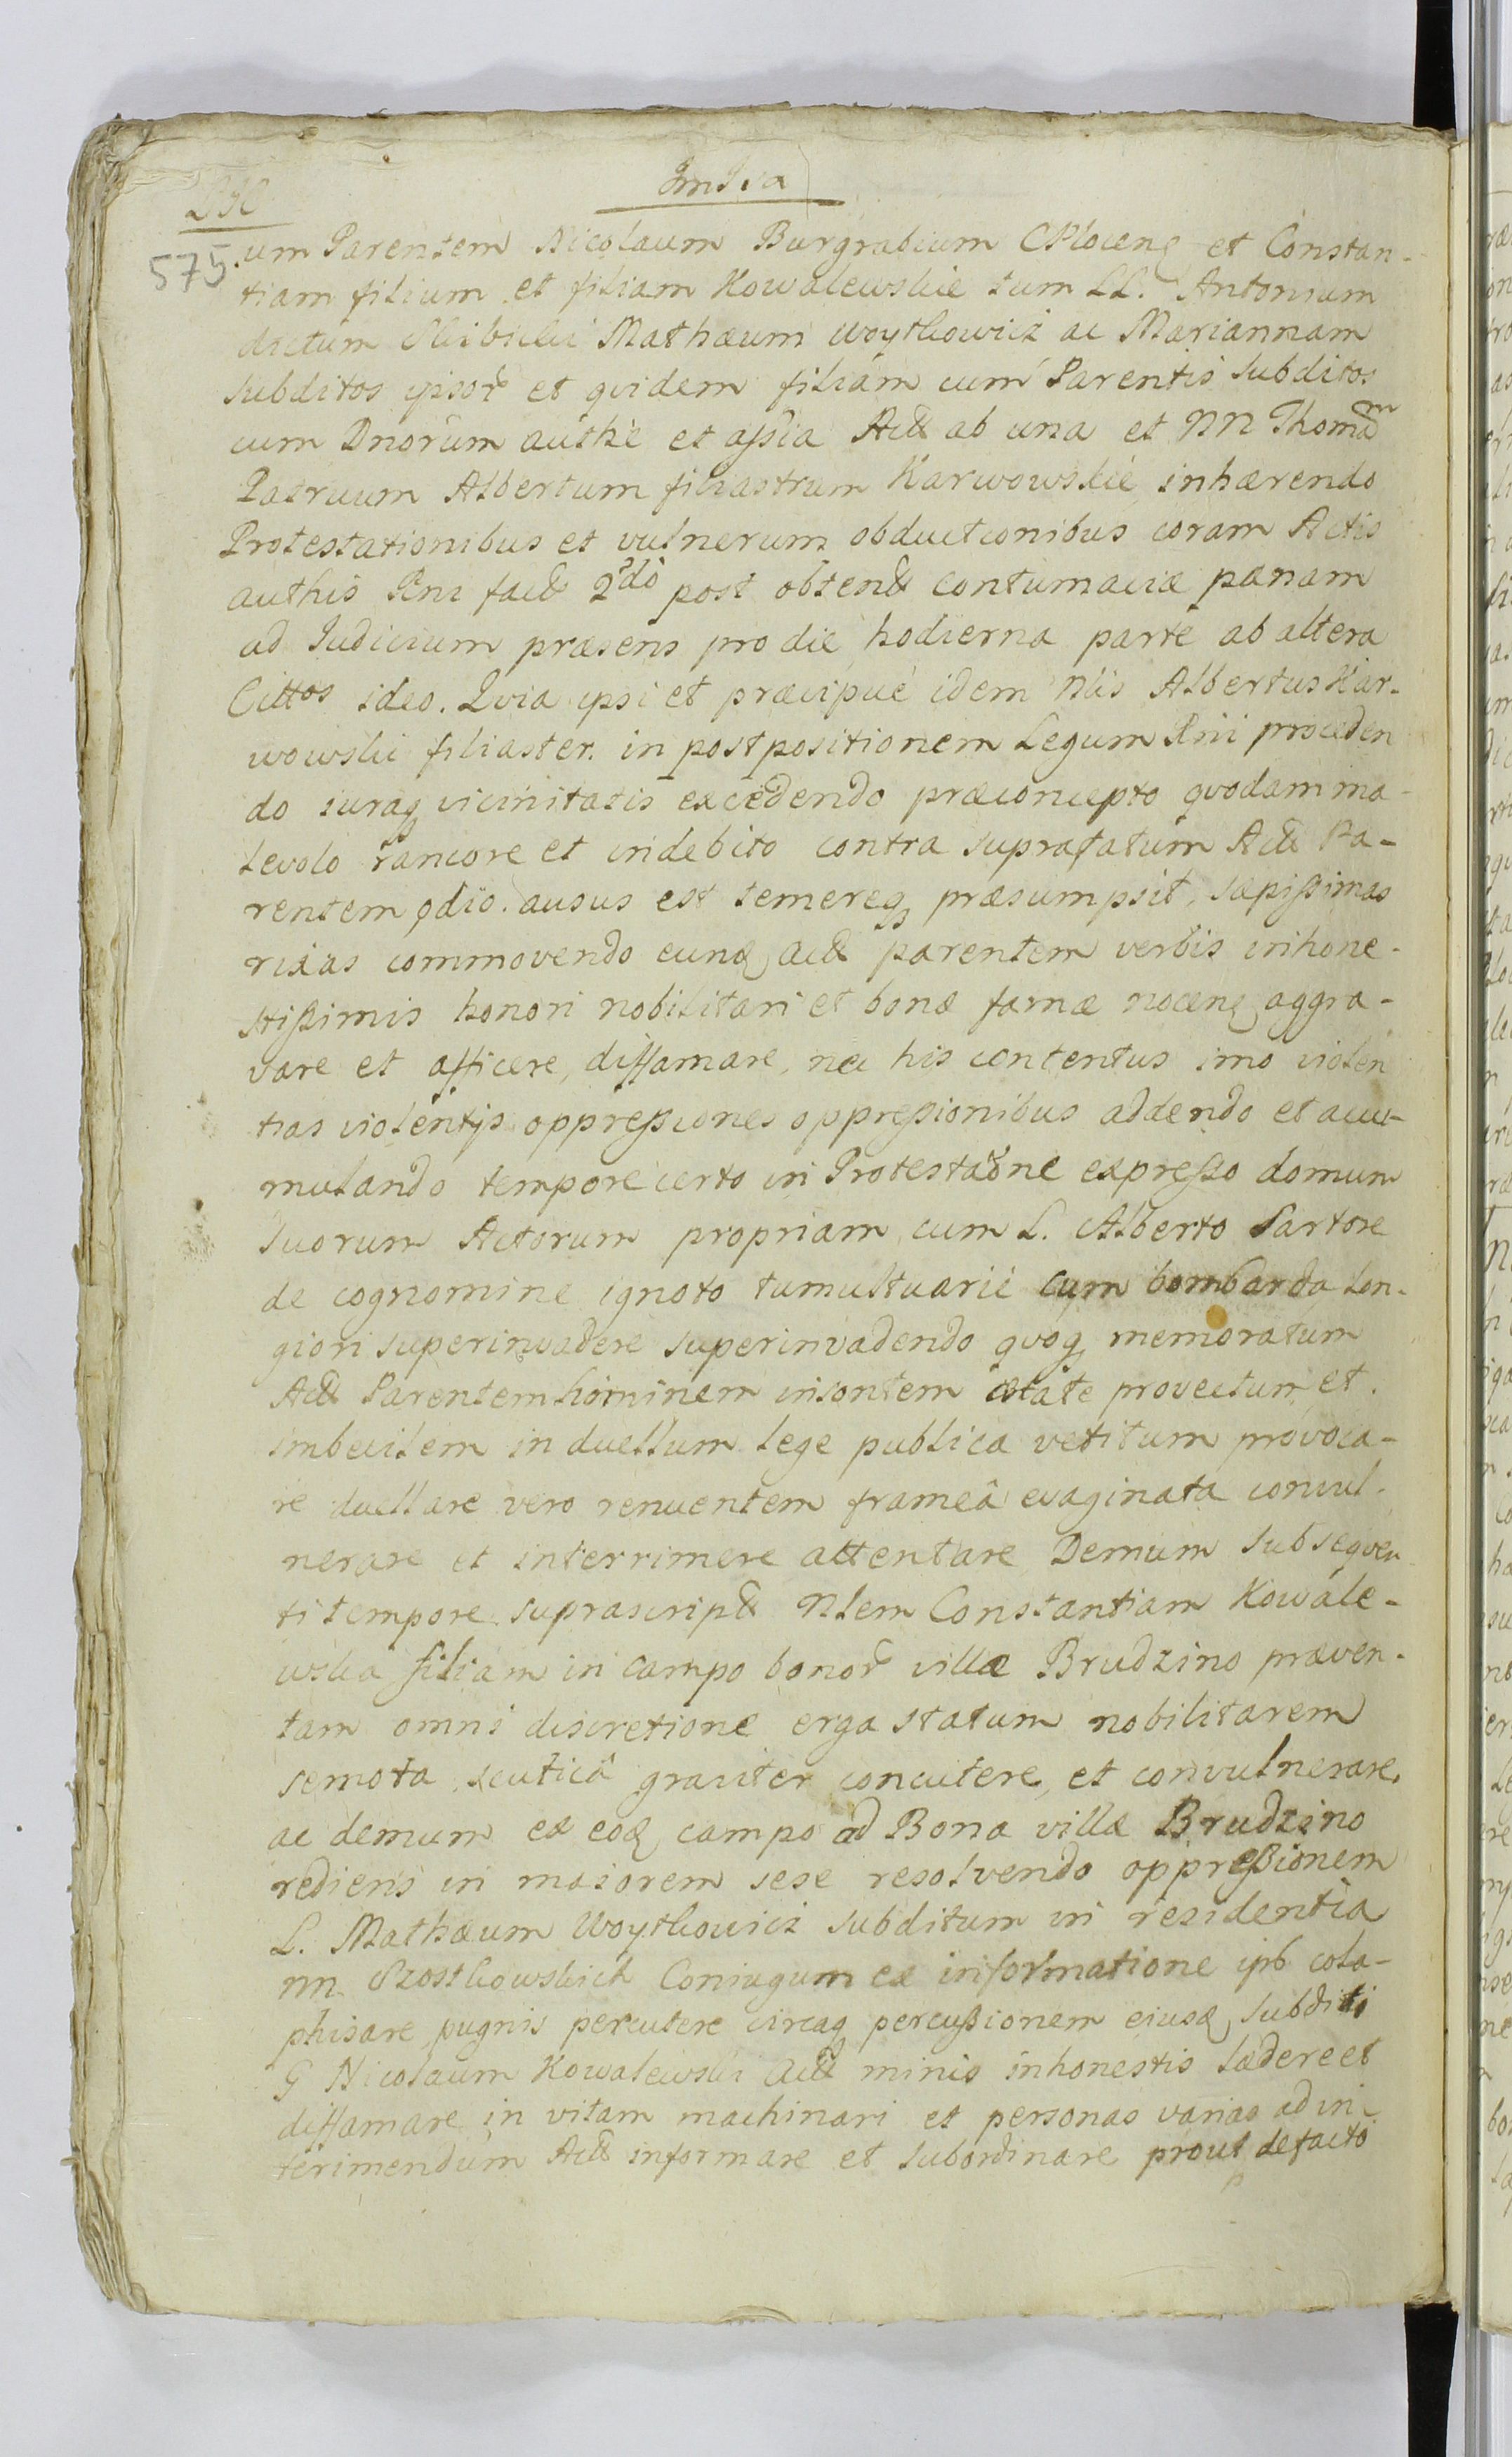 575
um Parentem Nicolaum Burgrabium CPlocens et Constan-
tiam filium et filiam Kowalewskie tum LL. Antonium
dictum Mathæum Woytkowicz ac Mariannam
subditos ipsor et qvidem filiam cum Parentis subditos
cum Dnorum authte et assia Act ab una et NN Thomam
Patruum Albertum filiastrum Karwowskie inhærendo
Protestationibus et vulnerum obductionibus coram Actis
authis fact 2do post obtent contumaciæ pænam
ad Iudicium præsens pro die hodierna parte ab altera
Cittos ideo. Qvia ipsi et præcipue idem Nlis Albertus Kar-
wowski filiaster in postpositionem Legum Rni proceden
do iuraq vicinitatis excedendo præconcepto qvodam ma-
levolo rancore et indebito contra suprafatum Act Pa-
rentem odio. ausus est temereq præsumpsit, sæpissimas
rixas commovendo eund act parentem verbis inhone-
stissimis honori nobilitari et bonæ famæ nocens aggra-
vare et afficere, diffamare, nec his contentus imo violen
tias violentys oppressiones oppressionibus addendo et accu-
mulando tempore certo in Protestaõne expresso domum
suorum Actorum propriam cum L. Alberto Sartore
de cognomine ignoto tumultuarie cum bombarda lon-
giori superinvadere superinvadendo qvoq memoratum
Act Parentem hominem insontem ætate provectum et
imbecilem in duellum lege publica vetitum provoca-
re duellare vero renuentem frameâ evaginata convul-
nerare et interrimere attentare Demum subseqven
ti tempore suprascript Nlem Constantiam Kowale-
wska filiam in campo bonor villæ Brudzino præven-
tam omni discretione erga statum nobilitarem
semota scuticâ graviter concutere, et convulnerare,
ac demum ex eod campo ad Bona villæ Brudzino
rediens in maiorem sese resolvendo oppressionem
L. Mathæum Woytkowicz subditum in residentia
nn Szostkowskich Coniugum ex informatione ips cola-
phisare pugnis percutere circaq percussionem eiusd subditi
G Nicolaum Kowalewski Act minis inhonestis lædere et
diffamare in vitam machinari et personas varias ad in-
terimendum Act informare et subordinare prout de facto